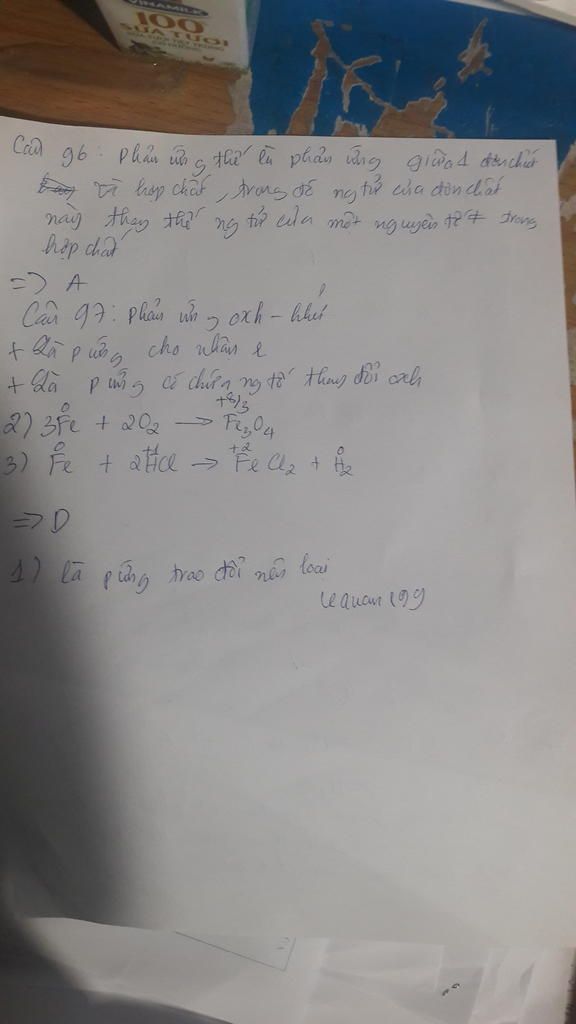 VINAMILK
100
SỮA TƯƠI
Câu 96: phản ứng thế là phản ứng giữa 1 đơn chất
và hợp chất, trong đó ng tử của đơn chất
này thay thế ng tử của một nguyên tố ≠ trong
hợp chất
=> A
Câu 97: phản ứng oxh - khử
+ Là p ứng cho nhận e
+ Là p ứng có chứa ng tố thay đổi oxh
0 +8/3
2) 3Fe + 2O2 → Fe3O4
0 +1 +2 0
3) Fe + 2HCl → FeCl2 + H2
=> D
1) là p ứng trao đổi nên loại
lequan199